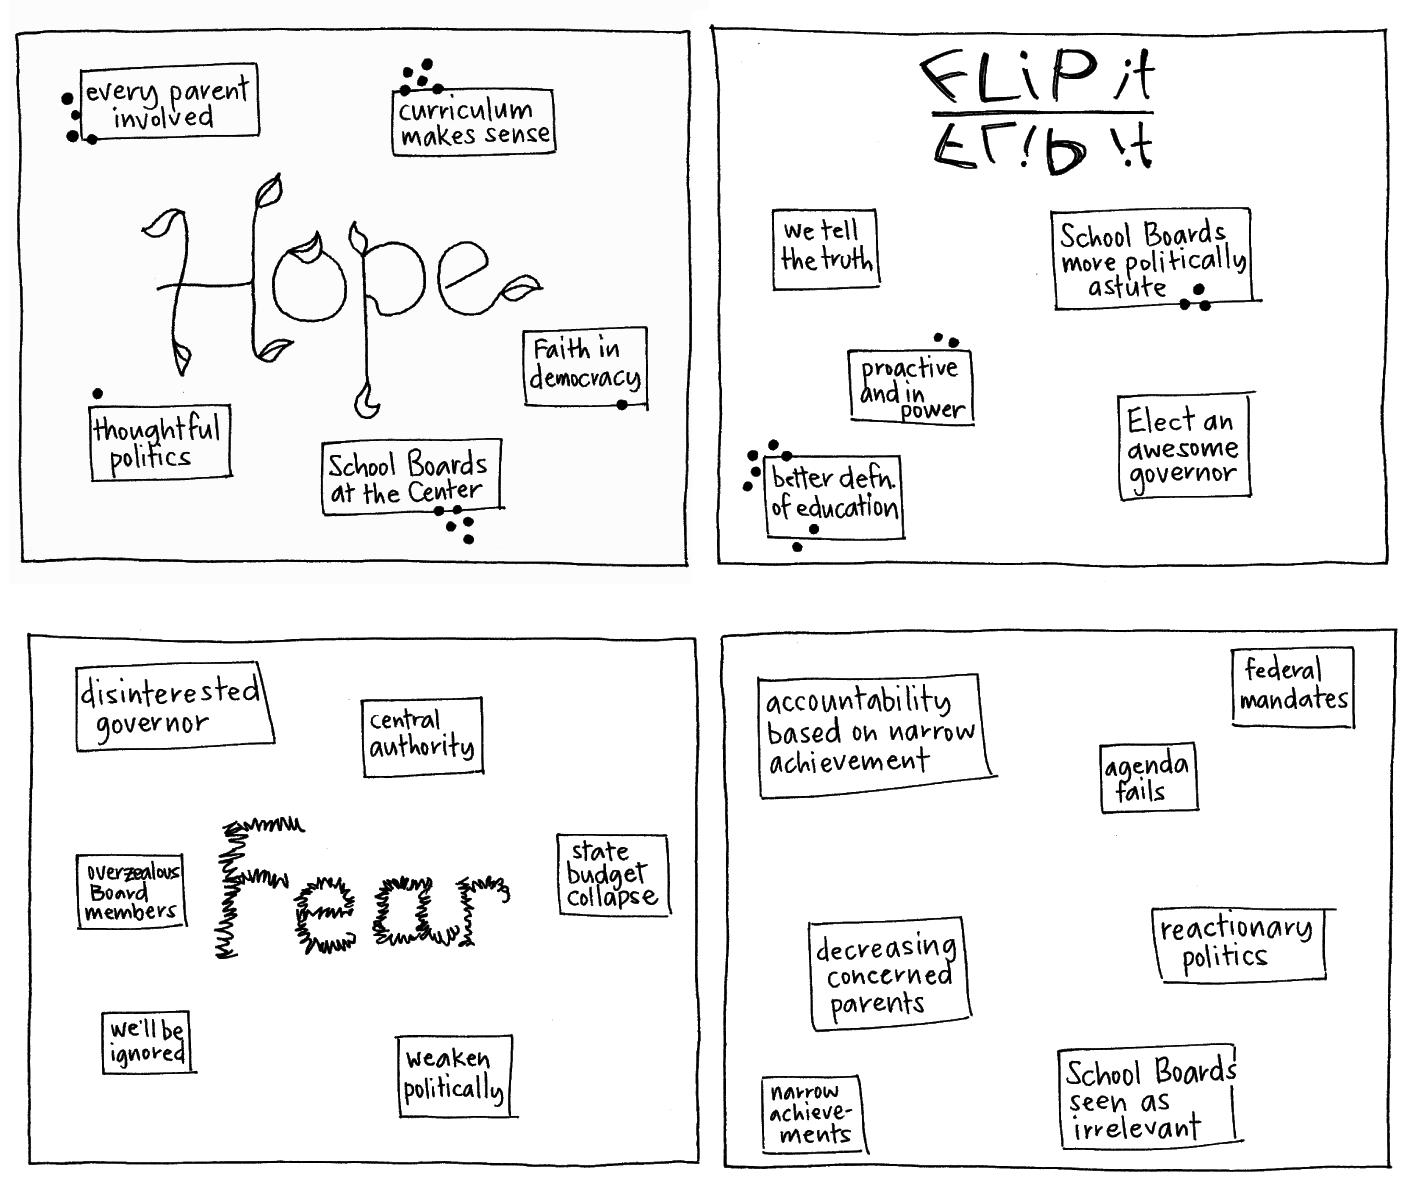 every parent
involved
curriculum
makes sense
Hope
Faith in
democracy
thoughtful
politics
School Boards
at the Center
FLiP it
FLiP it
we tell
the truth
School Boards
more politically
astute
proactive
and in
power
Elect an
awesome
governor
better defn.
of education
disinterested
governor
central
authority
Fear
overzealous
Board
members
state
budget
collapse
we'll be
ignored
weaken
politically
accountability
based on narrow
achievement
federal
mandates
agenda
fails
decreasing
concerned
parents
reactionary
politics
narrow
achieve-
ments
School Boards
seen as
irrelevant